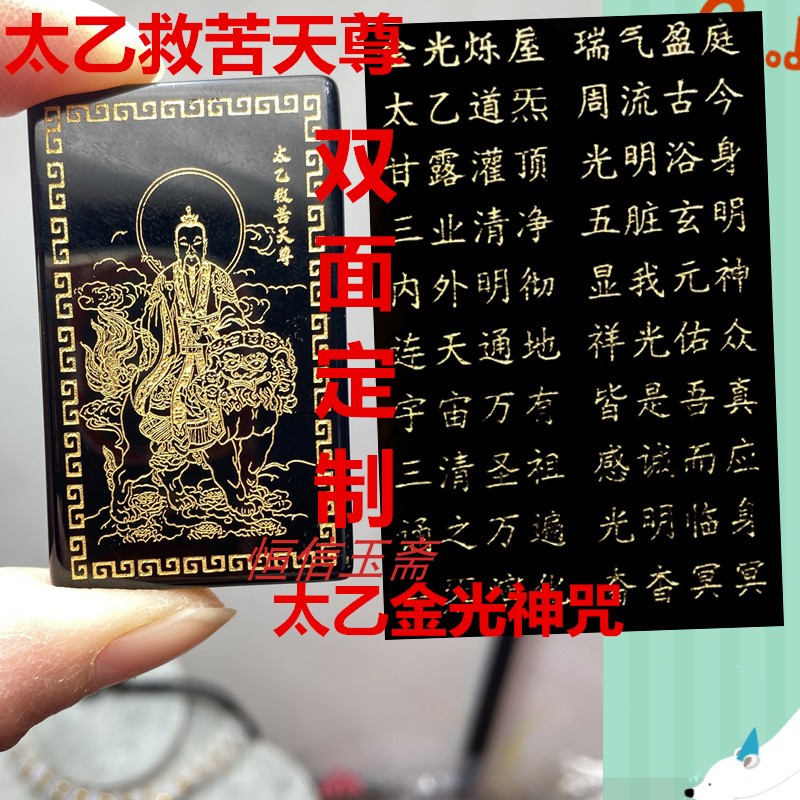 太乙救苦天尊
太乙救苦天尊
双面定制
金光烁屋 瑞气盈庭
太乙道炁 周流古今
甘露灌顶 光明浴身
三业清净 五脏玄明
内外明彻 显我元神
连天通地 祥光佑众
宇宙万有 皆是吾真
三清圣祖 感诚而应
诵之万遍 光明临身
杳杳冥冥
恒信玉斋
太乙金光神咒